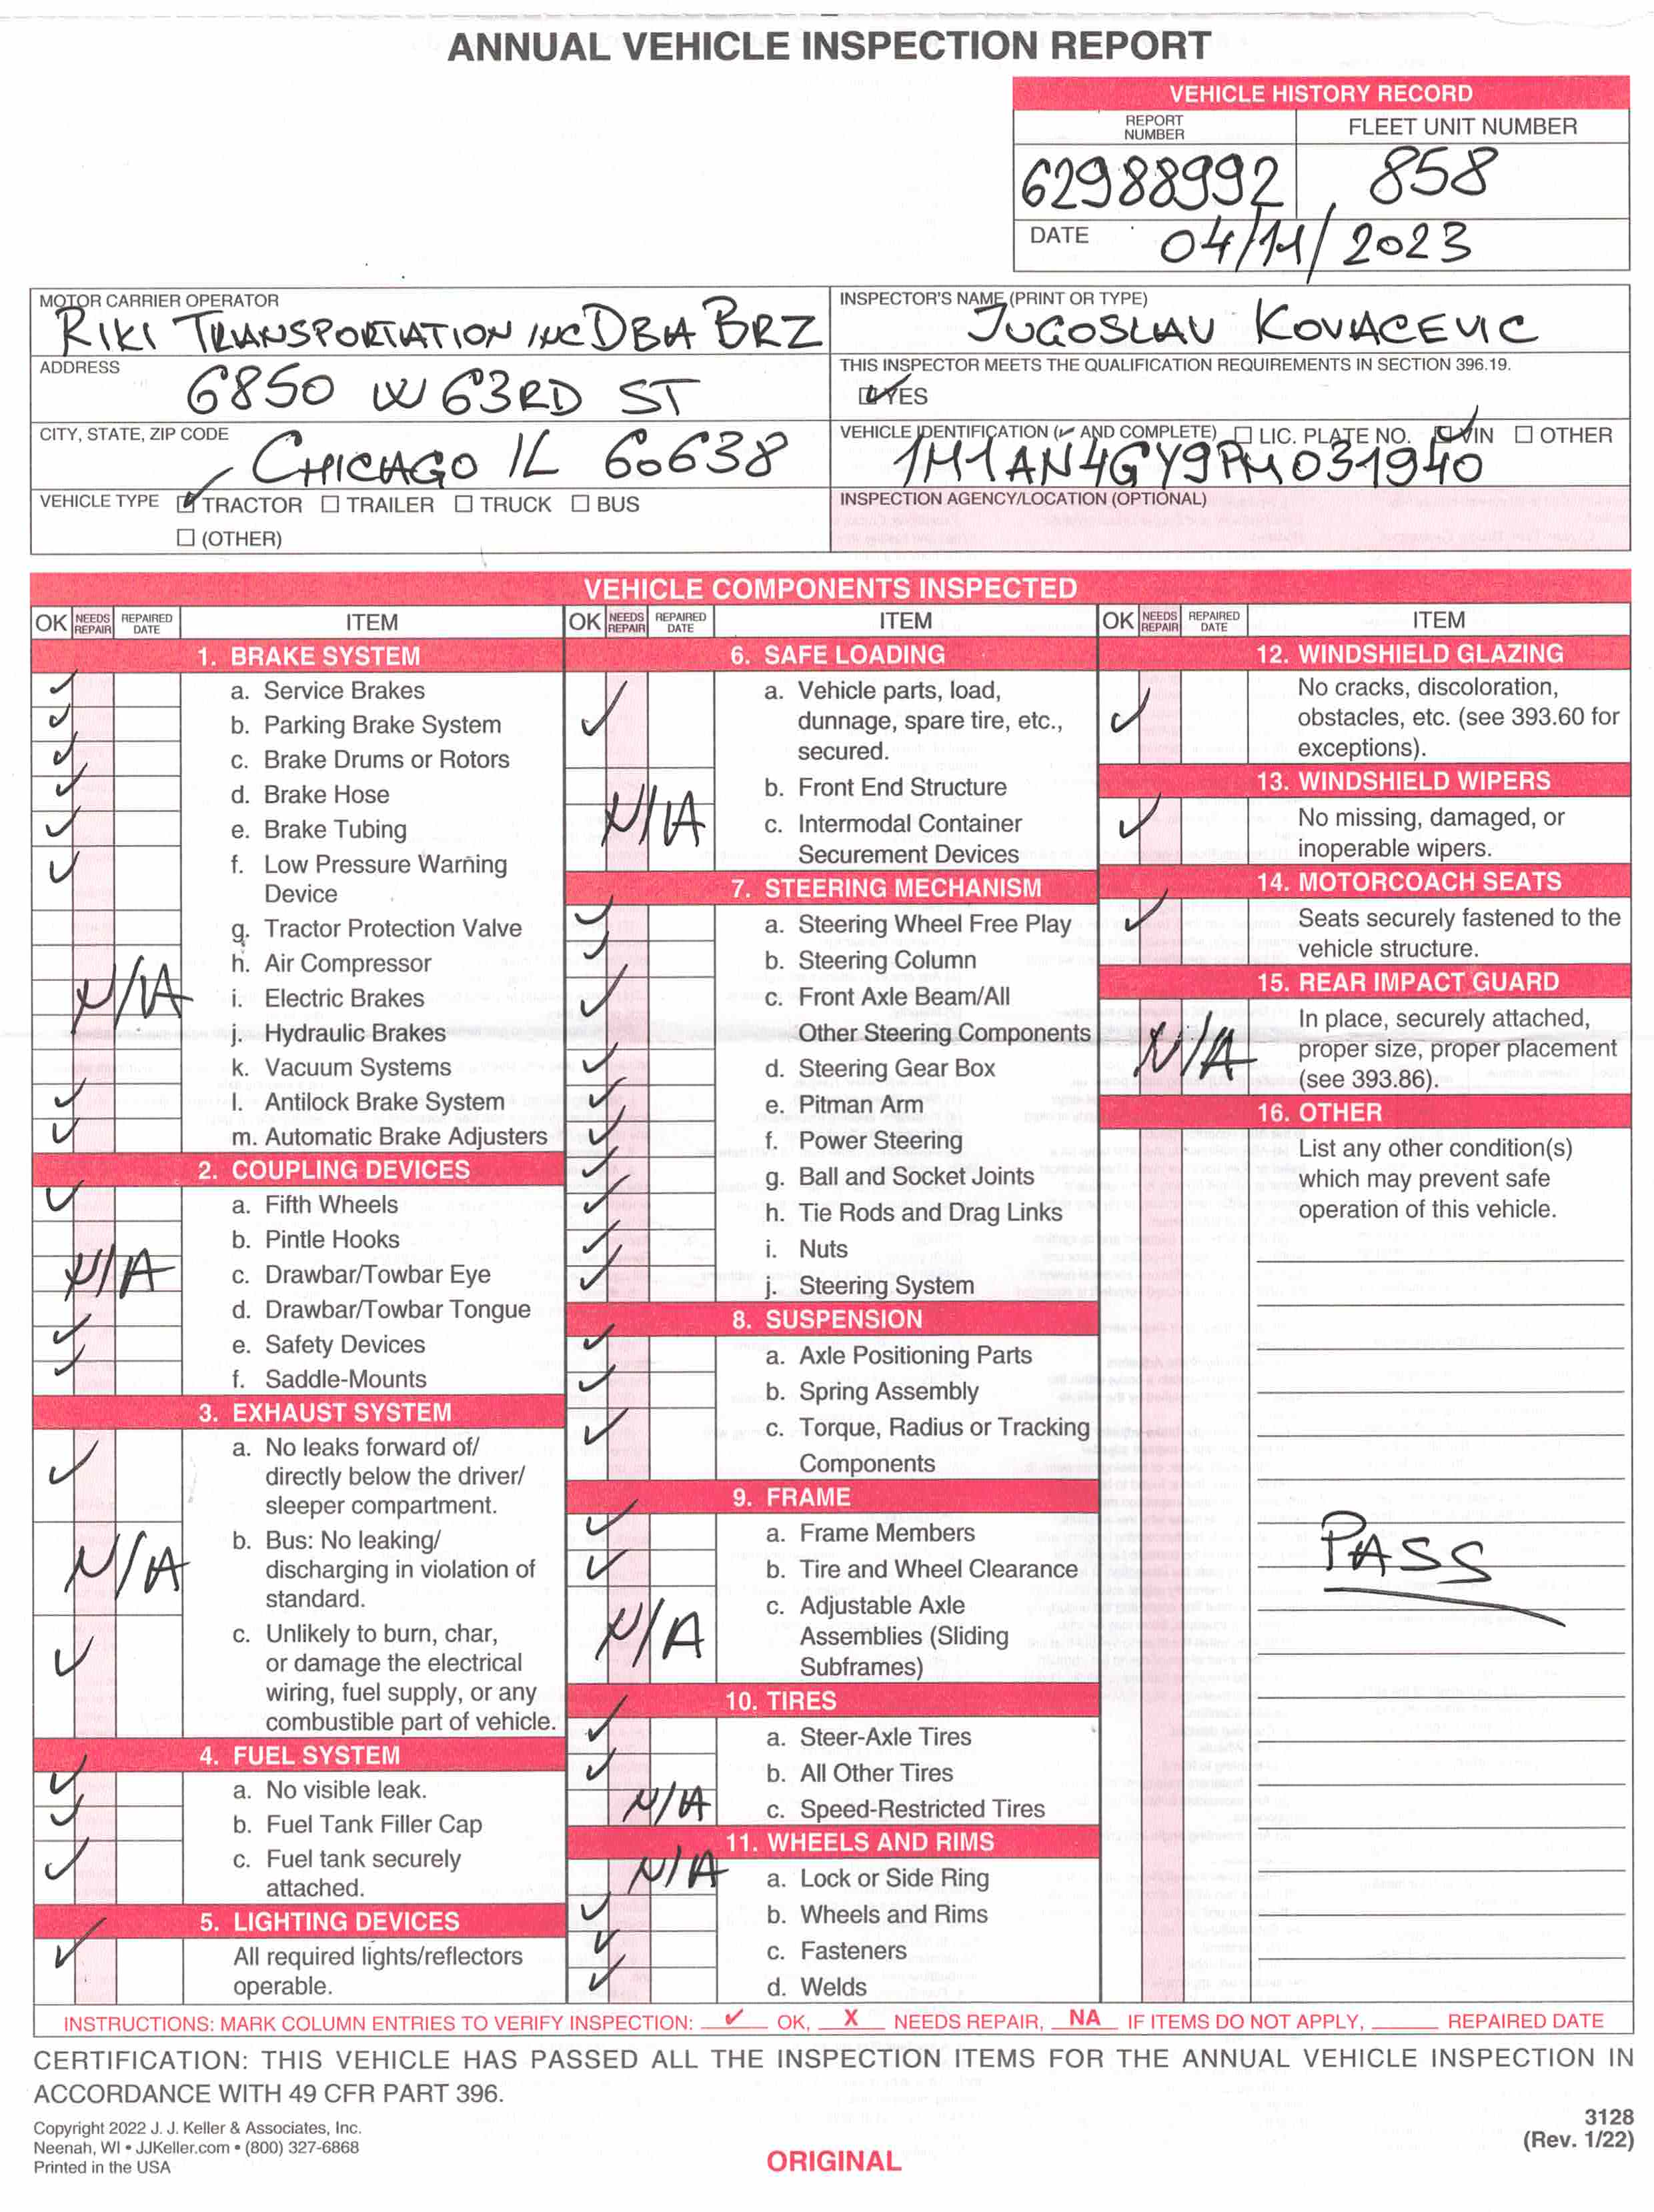 ANNUAL VEHICLE INSPECTION REPORT
VEHICLE HISTORY RECORD
REPORT NUMBER
FLEET UNIT NUMBER
62988992
858
DATE 04/11/2023
MOTOR CARRIER OPERATOR
RIKI TRANSPORTATION INC DBA BRZ
INSPECTOR'S NAME (PRINT OR TYPE)
JUGOSLAV KOVACEVIC
ADDRESS
6850 W 63RD ST
THIS INSPECTOR MEETS THE QUALIFICATION REQUIREMENTS IN SECTION 396.19.
☑ YES
CITY, STATE, ZIP CODE
CHICAGO IL 60638
VEHICLE IDENTIFICATION (✓ AND COMPLETE) ☐ LIC. PLATE NO. ☑ VIN ☐ OTHER
1M1AN4GY9PM031940
VEHICLE TYPE ☑ TRACTOR ☐ TRAILER ☐ TRUCK ☐ BUS
☐ (OTHER)
INSPECTION AGENCY/LOCATION (OPTIONAL)
VEHICLE COMPONENTS INSPECTED
OK NEEDS REPAIR REPAIRED DATE ITEM
1. BRAKE SYSTEM
✓ a. Service Brakes
✓ b. Parking Brake System
✓ c. Brake Drums or Rotors
✓ d. Brake Hose
✓ e. Brake Tubing
✓ f. Low Pressure Warning
Device
g. Tractor Protection Valve
h. Air Compressor
N/A i. Electric Brakes
j. Hydraulic Brakes
k. Vacuum Systems
✓ l. Antilock Brake System
✓ m. Automatic Brake Adjusters
2. COUPLING DEVICES
✓ a. Fifth Wheels
b. Pintle Hooks
N/A c. Drawbar/Towbar Eye
d. Drawbar/Towbar Tongue
✓ e. Safety Devices
✓ f. Saddle-Mounts
3. EXHAUST SYSTEM
✓ a. No leaks forward of/
directly below the driver/
sleeper compartment.
N/A b. Bus: No leaking/
discharging in violation of
standard.
✓ c. Unlikely to burn, char,
or damage the electrical
wiring, fuel supply, or any
combustible part of vehicle.
4. FUEL SYSTEM
✓ a. No visible leak.
✓ b. Fuel Tank Filler Cap
✓ c. Fuel tank securely
attached.
5. LIGHTING DEVICES
✓ All required lights/reflectors
operable.
OK NEEDS REPAIR REPAIRED DATE ITEM
6. SAFE LOADING
✓ a. Vehicle parts, load,
dunnage, spare tire, etc.,
secured.
b. Front End Structure
N/A c. Intermodal Container
Securement Devices
7. STEERING MECHANISM
✓ a. Steering Wheel Free Play
✓ b. Steering Column
✓ c. Front Axle Beam/All
Other Steering Components
✓ d. Steering Gear Box
✓ e. Pitman Arm
✓ f. Power Steering
✓ g. Ball and Socket Joints
✓ h. Tie Rods and Drag Links
✓ i. Nuts
✓ j. Steering System
8. SUSPENSION
✓ a. Axle Positioning Parts
✓ b. Spring Assembly
✓ c. Torque, Radius or Tracking
Components
9. FRAME
✓ a. Frame Members
✓ b. Tire and Wheel Clearance
N/A c. Adjustable Axle
Assemblies (Sliding
Subframes)
10. TIRES
✓ a. Steer-Axle Tires
✓ b. All Other Tires
N/A c. Speed-Restricted Tires
11. WHEELS AND RIMS
N/A a. Lock or Side Ring
✓ b. Wheels and Rims
✓ c. Fasteners
✓ d. Welds
OK NEEDS REPAIR REPAIRED DATE ITEM
12. WINDSHIELD GLAZING
✓ No cracks, discoloration,
obstacles, etc. (see 393.60 for
exceptions).
13. WINDSHIELD WIPERS
✓ No missing, damaged, or
inoperable wipers.
14. MOTORCOACH SEATS
✓ Seats securely fastened to the
vehicle structure.
15. REAR IMPACT GUARD
N/A In place, securely attached,
proper size, proper placement
(see 393.86).
16. OTHER
List any other condition(s)
which may prevent safe
operation of this vehicle.
PASS
INSTRUCTIONS: MARK COLUMN ENTRIES TO VERIFY INSPECTION: ✓ OK, X NEEDS REPAIR, NA IF ITEMS DO NOT APPLY, ______ REPAIRED DATE
CERTIFICATION: THIS VEHICLE HAS PASSED ALL THE INSPECTION ITEMS FOR THE ANNUAL VEHICLE INSPECTION IN
ACCORDANCE WITH 49 CFR PART 396.
Copyright 2022 J. J. Keller & Associates, Inc.
Neenah, WI • JJKeller.com • (800) 327-6868
Printed in the USA
ORIGINAL
3128
(Rev. 1/22)